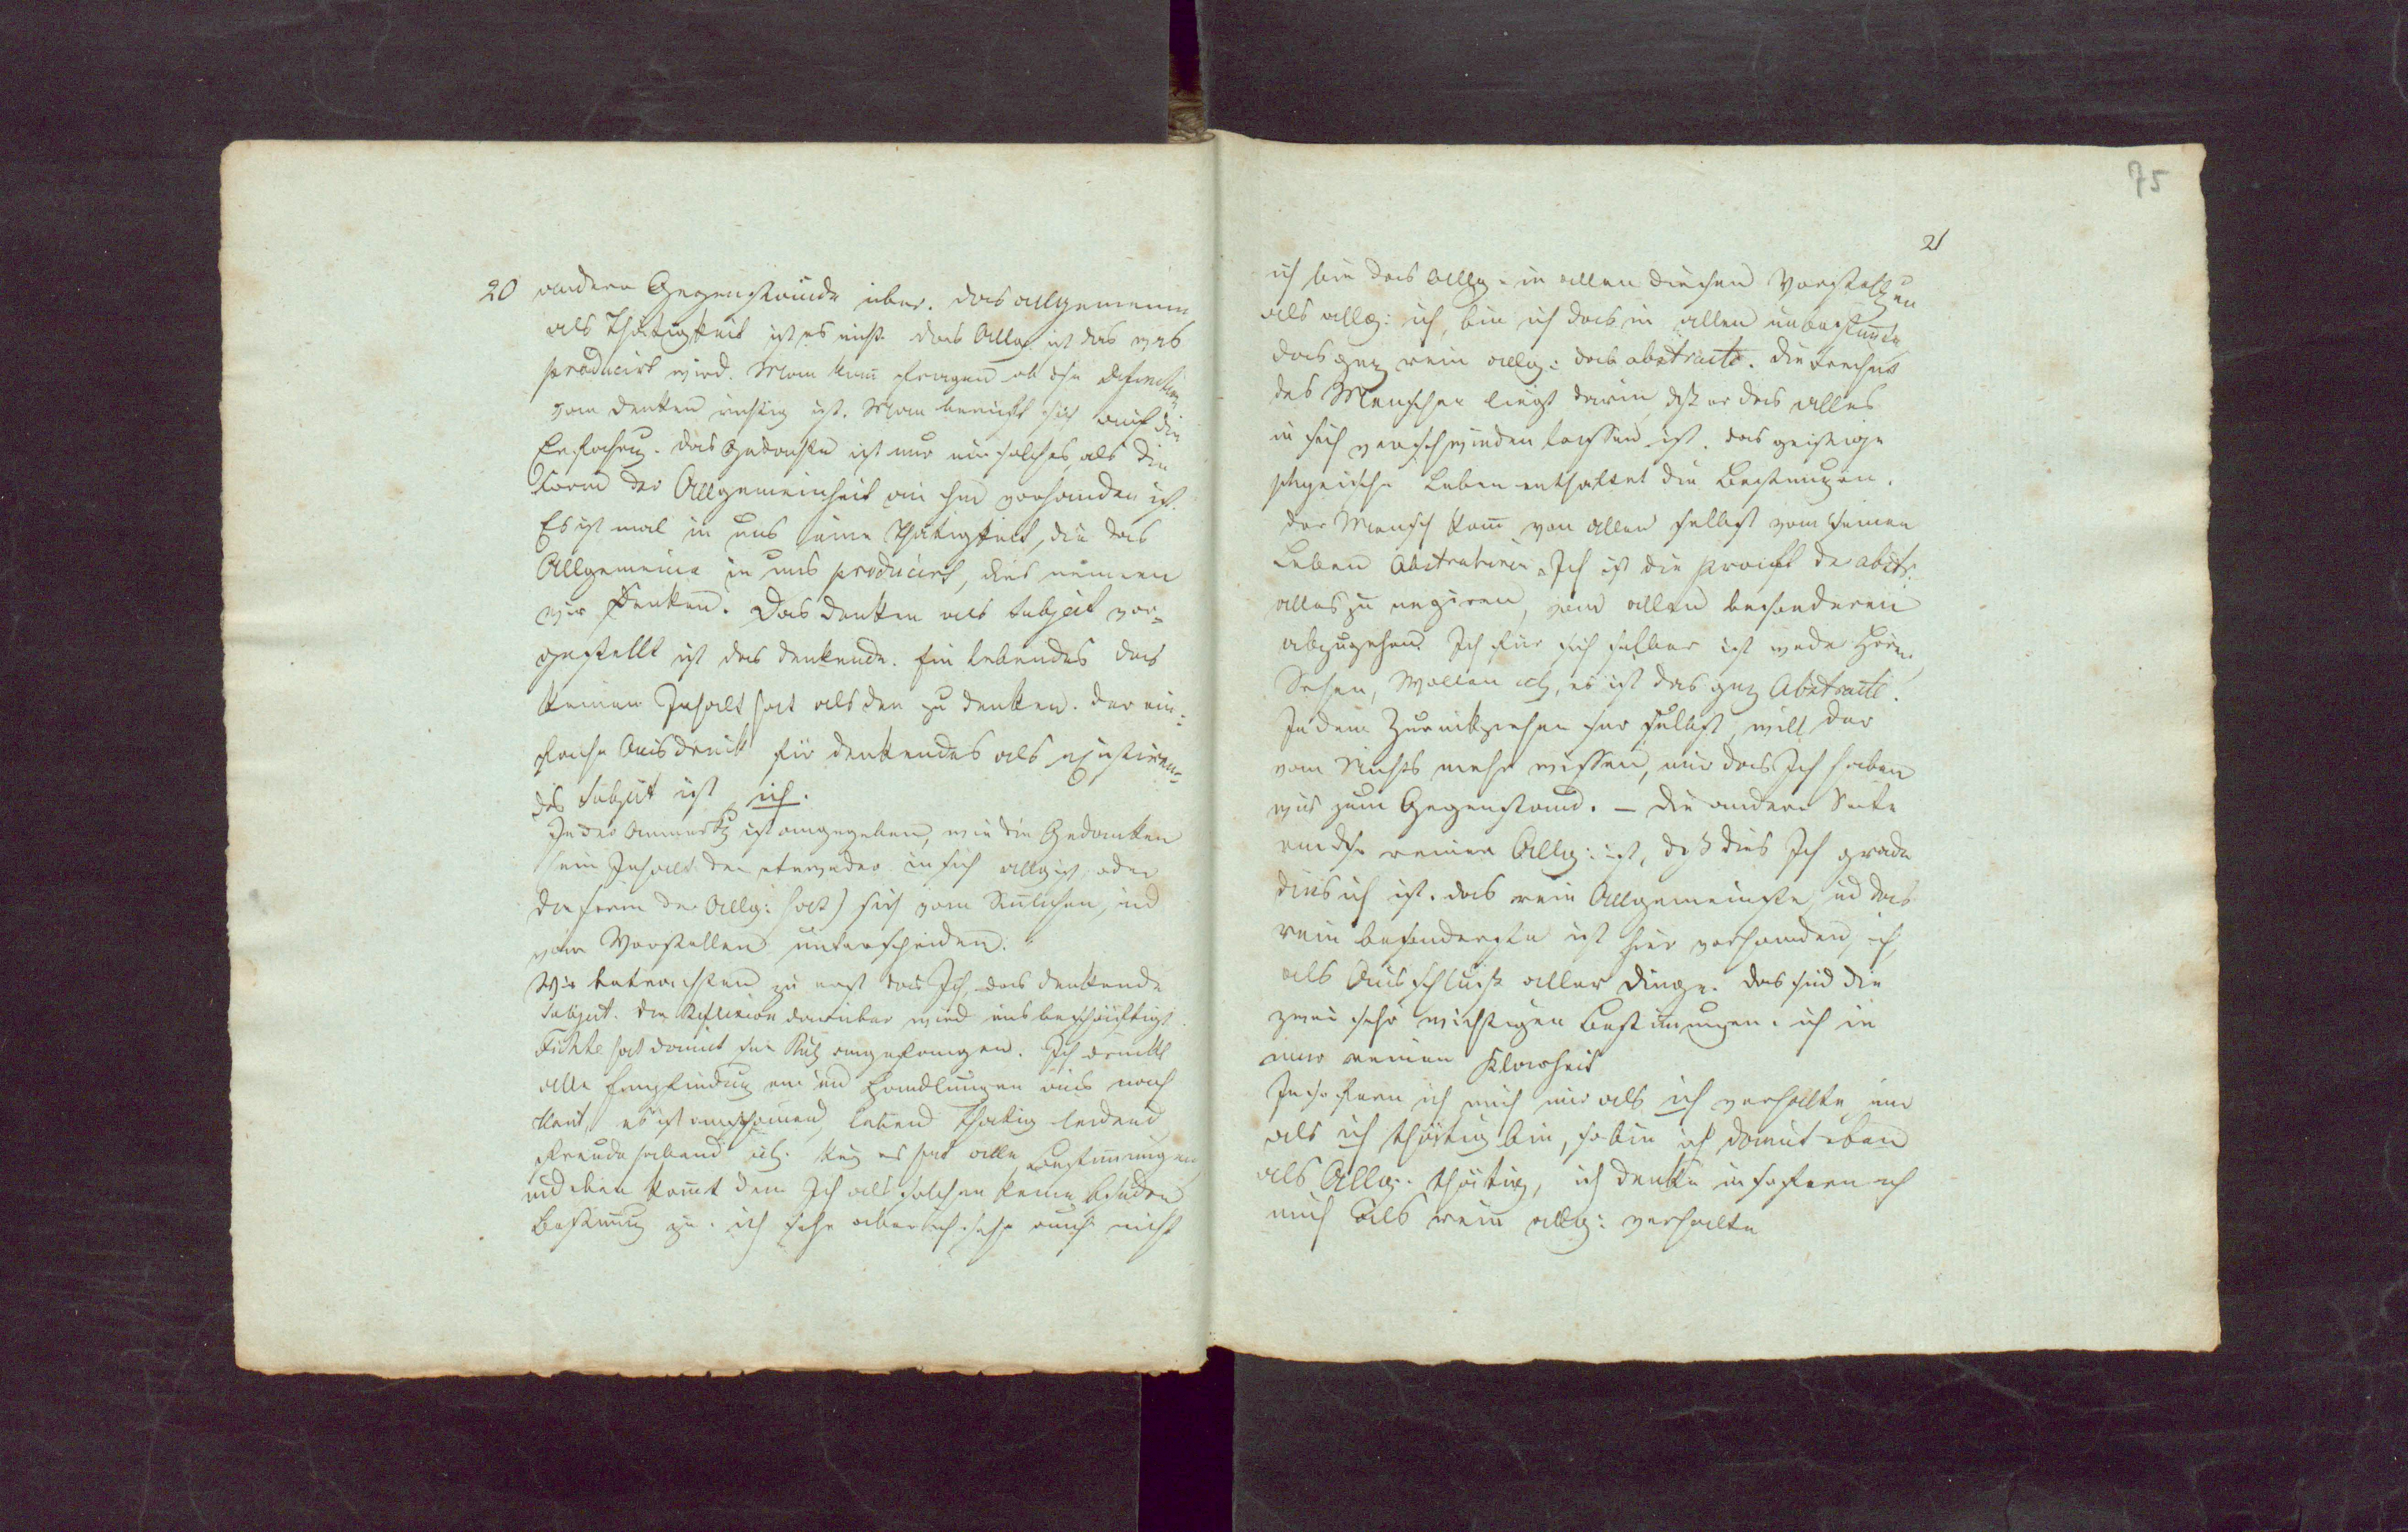 75
20 andere Gegenstände über. das allgemeine
als Thätigkeit ist es nicht das Allg. ist das was
producirt wird. Man kann fragen ob die Definition
vom Denken richtig ist. Man beruft sich auf die
Erfahrung. das Gedachte ist nur ein solches, als die
Form der Allgemeinheit an ihm vorhanden ist.
Es ist mal in uns eine Thätigkeit, die das
Allgemeine in uns producirt, dies nennen
wir Denken. Das Denken als Subject vor-
gestellt ist das denkende. Ein lebendes das
keinen Inhalt hat als den zu denken. der ein-
fache Ausdruck für denkendes als existiren-
des Subject ist ich.
In der Anmerkg ist angegeben, wie die Gedanken
sein Inhalt der entweder in sich allg ist, oder
die Form der Allg: hat) sich vom Sinnlichen, und
vom Vorstellen unterscheiden.
Wir betrachten zu erst das Ich, das denkende
Subject. Die Reflexion darüber wird uns beschäftigt
Fichte hat damit seine angefangen. Ich drückt
alle Empfindung und Handlungen aus nach
Kant, es ist anschauend, lebend thätig leidend
Freude habend es hat alle Bestimmungen
und eben kommt dem Ich als solchen keine
Bestimmung zu. ich sehe aber ich sehe auch nicht
21
ich bin das Allg: in allen diesen Vorstellgen
als allg: ich, bin ich das in allen unbestimmte
das ganz rein allg: das abstracte. die
des Menschen liegt darin, daß er das alles
in sich verschwinden lassen ist. das geistige
physische Leben enthaltet die Bestimungen.
der Mensch kann von allem selbst vom seinem
Leben Abstrahiren. Ich ist die Kraft der abstr:
alles zu negiren, von allem besonderen
abzugehen. Ich für sich selber ist weder Hören,
Sehen, Wollen etc, es ist das ganz Abstracte.
In dem Zurückziehen selbst, will der
von Nichts mehr wissen, nur das Ich haben
wir zum Gegenstand. – die andere Seite
reinen Allg: ist, daß dies Ich grade
dies ich ist. das rein Allgemeinste, und das
rein besonderste ist hier vorhanden, ich,
als Ausschluß aller Dinge. das sind die
zwei sehr wichtigen Bestimungen. ich in
reinen Klarheit
In so fern ich mich nur als ich verhalte, nur
als ich thätig bin, so bin ich damit eben
als Allg: thätig, ich denke in sofern ich
mich als rein allg: verhalte